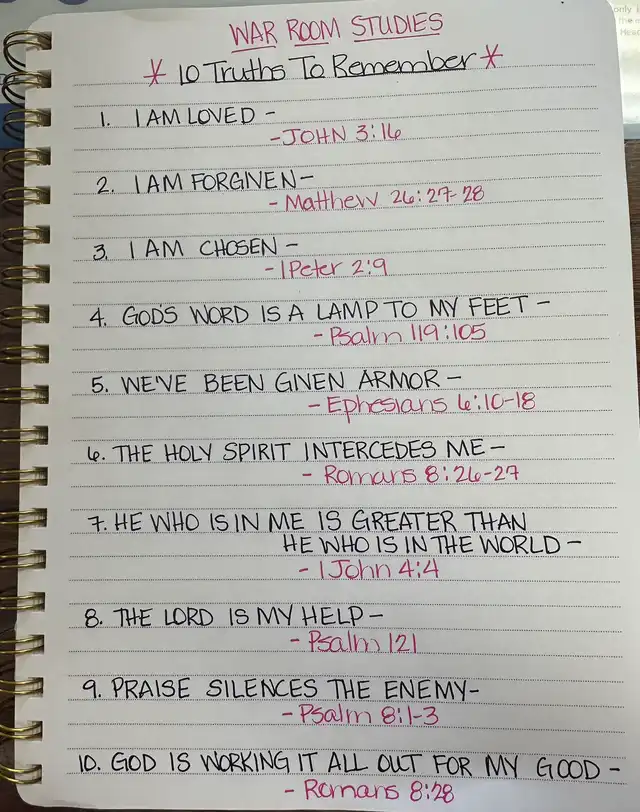 WAR ROOM STUDIES
* 10 Truths To Remember *
1. I AM LOVED -
- JOHN 3:16
2. I AM FORGIVEN -
- Matthew 26:27-28
3. I AM CHOSEN -
- 1 Peter 2:9
4. GOD'S WORD IS A LAMP TO MY FEET -
- Psalm 119:105
5. WE'VE BEEN GIVEN ARMOR -
- Ephesians 6:10-18
6. THE HOLY SPIRIT INTERCEDES ME -
- Romans 8:26-27
7. HE WHO IS IN ME IS GREATER THAN
HE WHO IS IN THE WORLD -
- 1 John 4:4
8. THE LORD IS MY HELP -
- Psalm 121
9. PRAISE SILENCES THE ENEMY -
- Psalm 8:1-3
10. GOD IS WORKING IT ALL OUT FOR MY GOOD -
- Romans 8:28